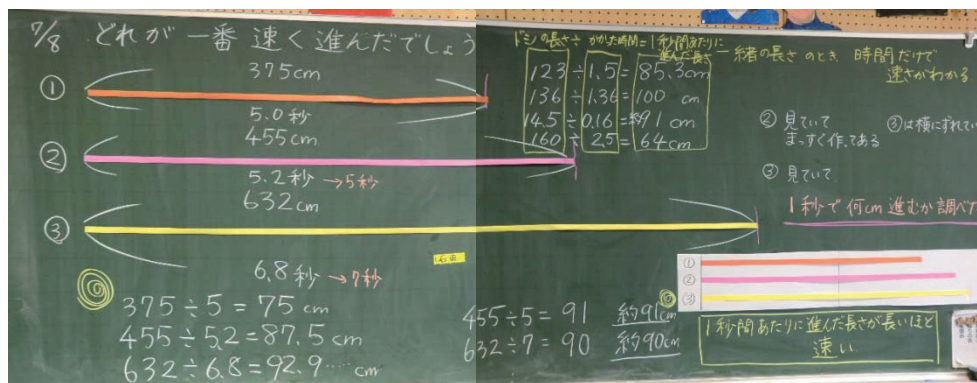 7/8 どれが一番速く進んだでしょう
①
375cm
5.0秒
②
455cm
5.2秒→5秒
③
632cm
6.8秒→7秒
375÷5=75cm
455÷5.2=87.5cm
632÷6.8=92.9…cm
石田
ドミノの長さ÷かかった時間=1秒間あたりに
進んだ長さ
123÷1.5=85.3cm
136÷1.36=100cm
14.5÷0.16=約91cm
160÷25=64cm
一緒の長さのとき 時間だけで
速さがわかる
②見ていて
まっすぐ作ってある
③は横にずれてい
③見ていて
1秒で何cm進むか調べ
①
②
③
455÷5=91 約91cm
632÷7=90 約90cm
1秒間あたりに進んだ長さが長いほど
速い